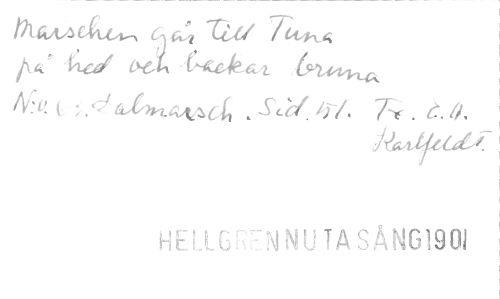 Marschen går till Tuna
på hed och backar bruna
Dalmarsch. Sid. 151. Tx. E.A.
Karlfeldt.
HELLGREN NUTA SÅNG 1901